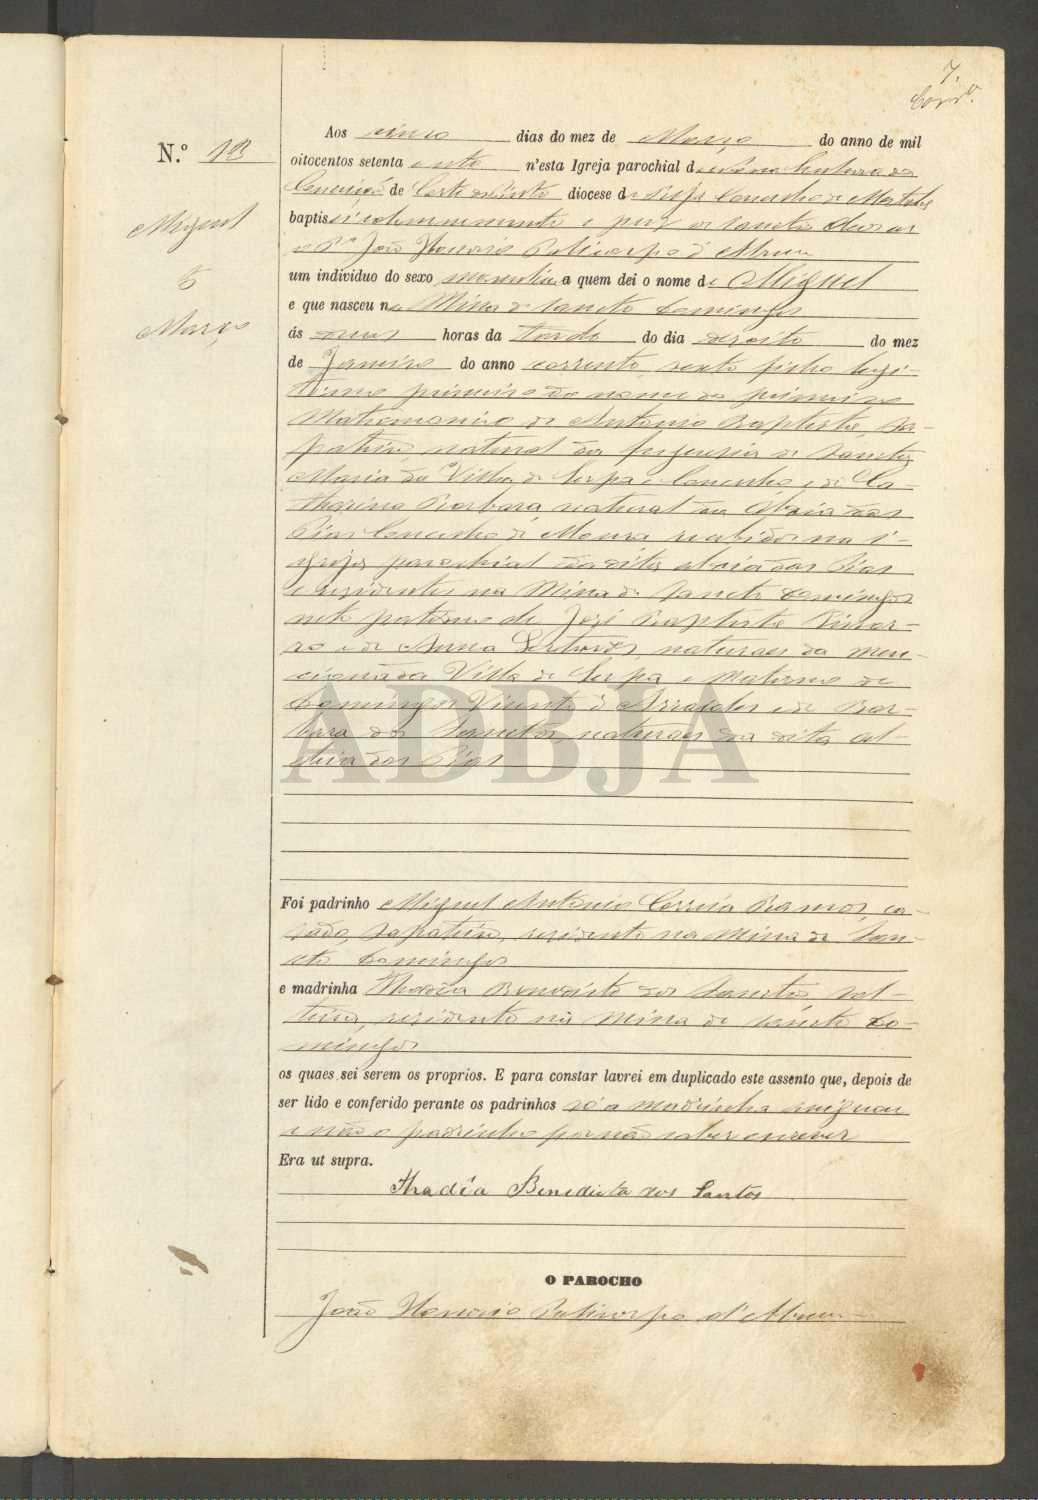 7.
Corr.º
N.º 13
Miguel
5
Março
Aos cinco dias do mez de Março do anno de mil
oitocentos setenta e oito n'esta Igreja parochial de Nossa Senhora da
Conceição de Corte do Pinto diocese de Beja Concelho de Mertola
baptisei solemnemente e puz os sanctos oleos
João Honorio Policarpo d'Abreu
um individuo do sexo masculino a quem dei o nome de Miguel
e que nasceu na Mina de Sancto Domingos
ás horas da tarde do dia dezoito do mez
de Janeiro do anno corrente, sexto filho legi-
timo primeiro do nome do primeiro
Matrimonio de Antonio Baptista, sa-
pateiro, natural da freguesia de Sancta
Maria da Villa de Serpa e Concelho e de Ca-
tharina Barbara natural da Aldeia das
Pias Concelho de Moura recebidos na I-
greja parochial da dita aldeia das Pias
e residentes na Mina de Sancto Domingos
neto paterno de José Baptista
e de Anna natural da men-
cionada Villa de Serpa e Materno de
Domingos Vicente d' e de Bar-
bara dos Sanctos naturaes da dita al-
deia das Pias
ADBJA
Foi padrinho Miguel Antonio Correia Ramos, ca-
sado, sapateiro, residente na Mina de San-
cto Domingos
e madrinha Thadéa Benedicta dos Sanctos, sol-
teira, residente na Mina de Sancto Do-
mingos
os quaes sei serem os proprios. E para constar lavrei em duplicado este assento que, depois de
ser lido e conferido perante os padrinhos só a madrinha assignou
e não o padrinho por não saber escrever
Era ut supra.
Thadéa Benedicta dos Santos
O PAROCHO
João Honorio Policarpo d'Abreu